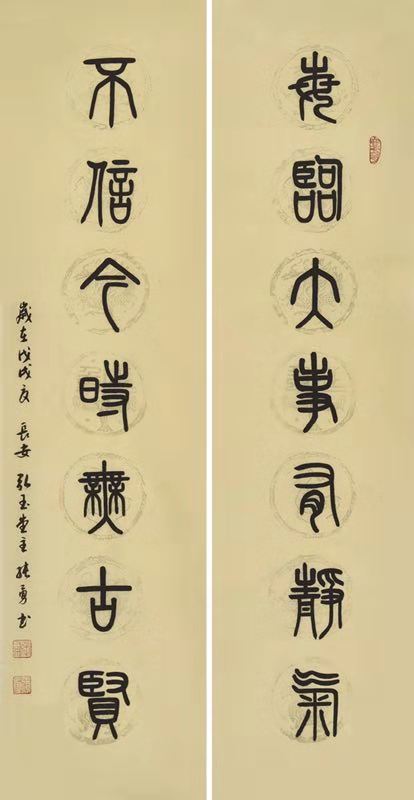 每臨大事有靜氣
不信今時無古賢
歲在戊戌夏 長安弘玉堂主張勇书